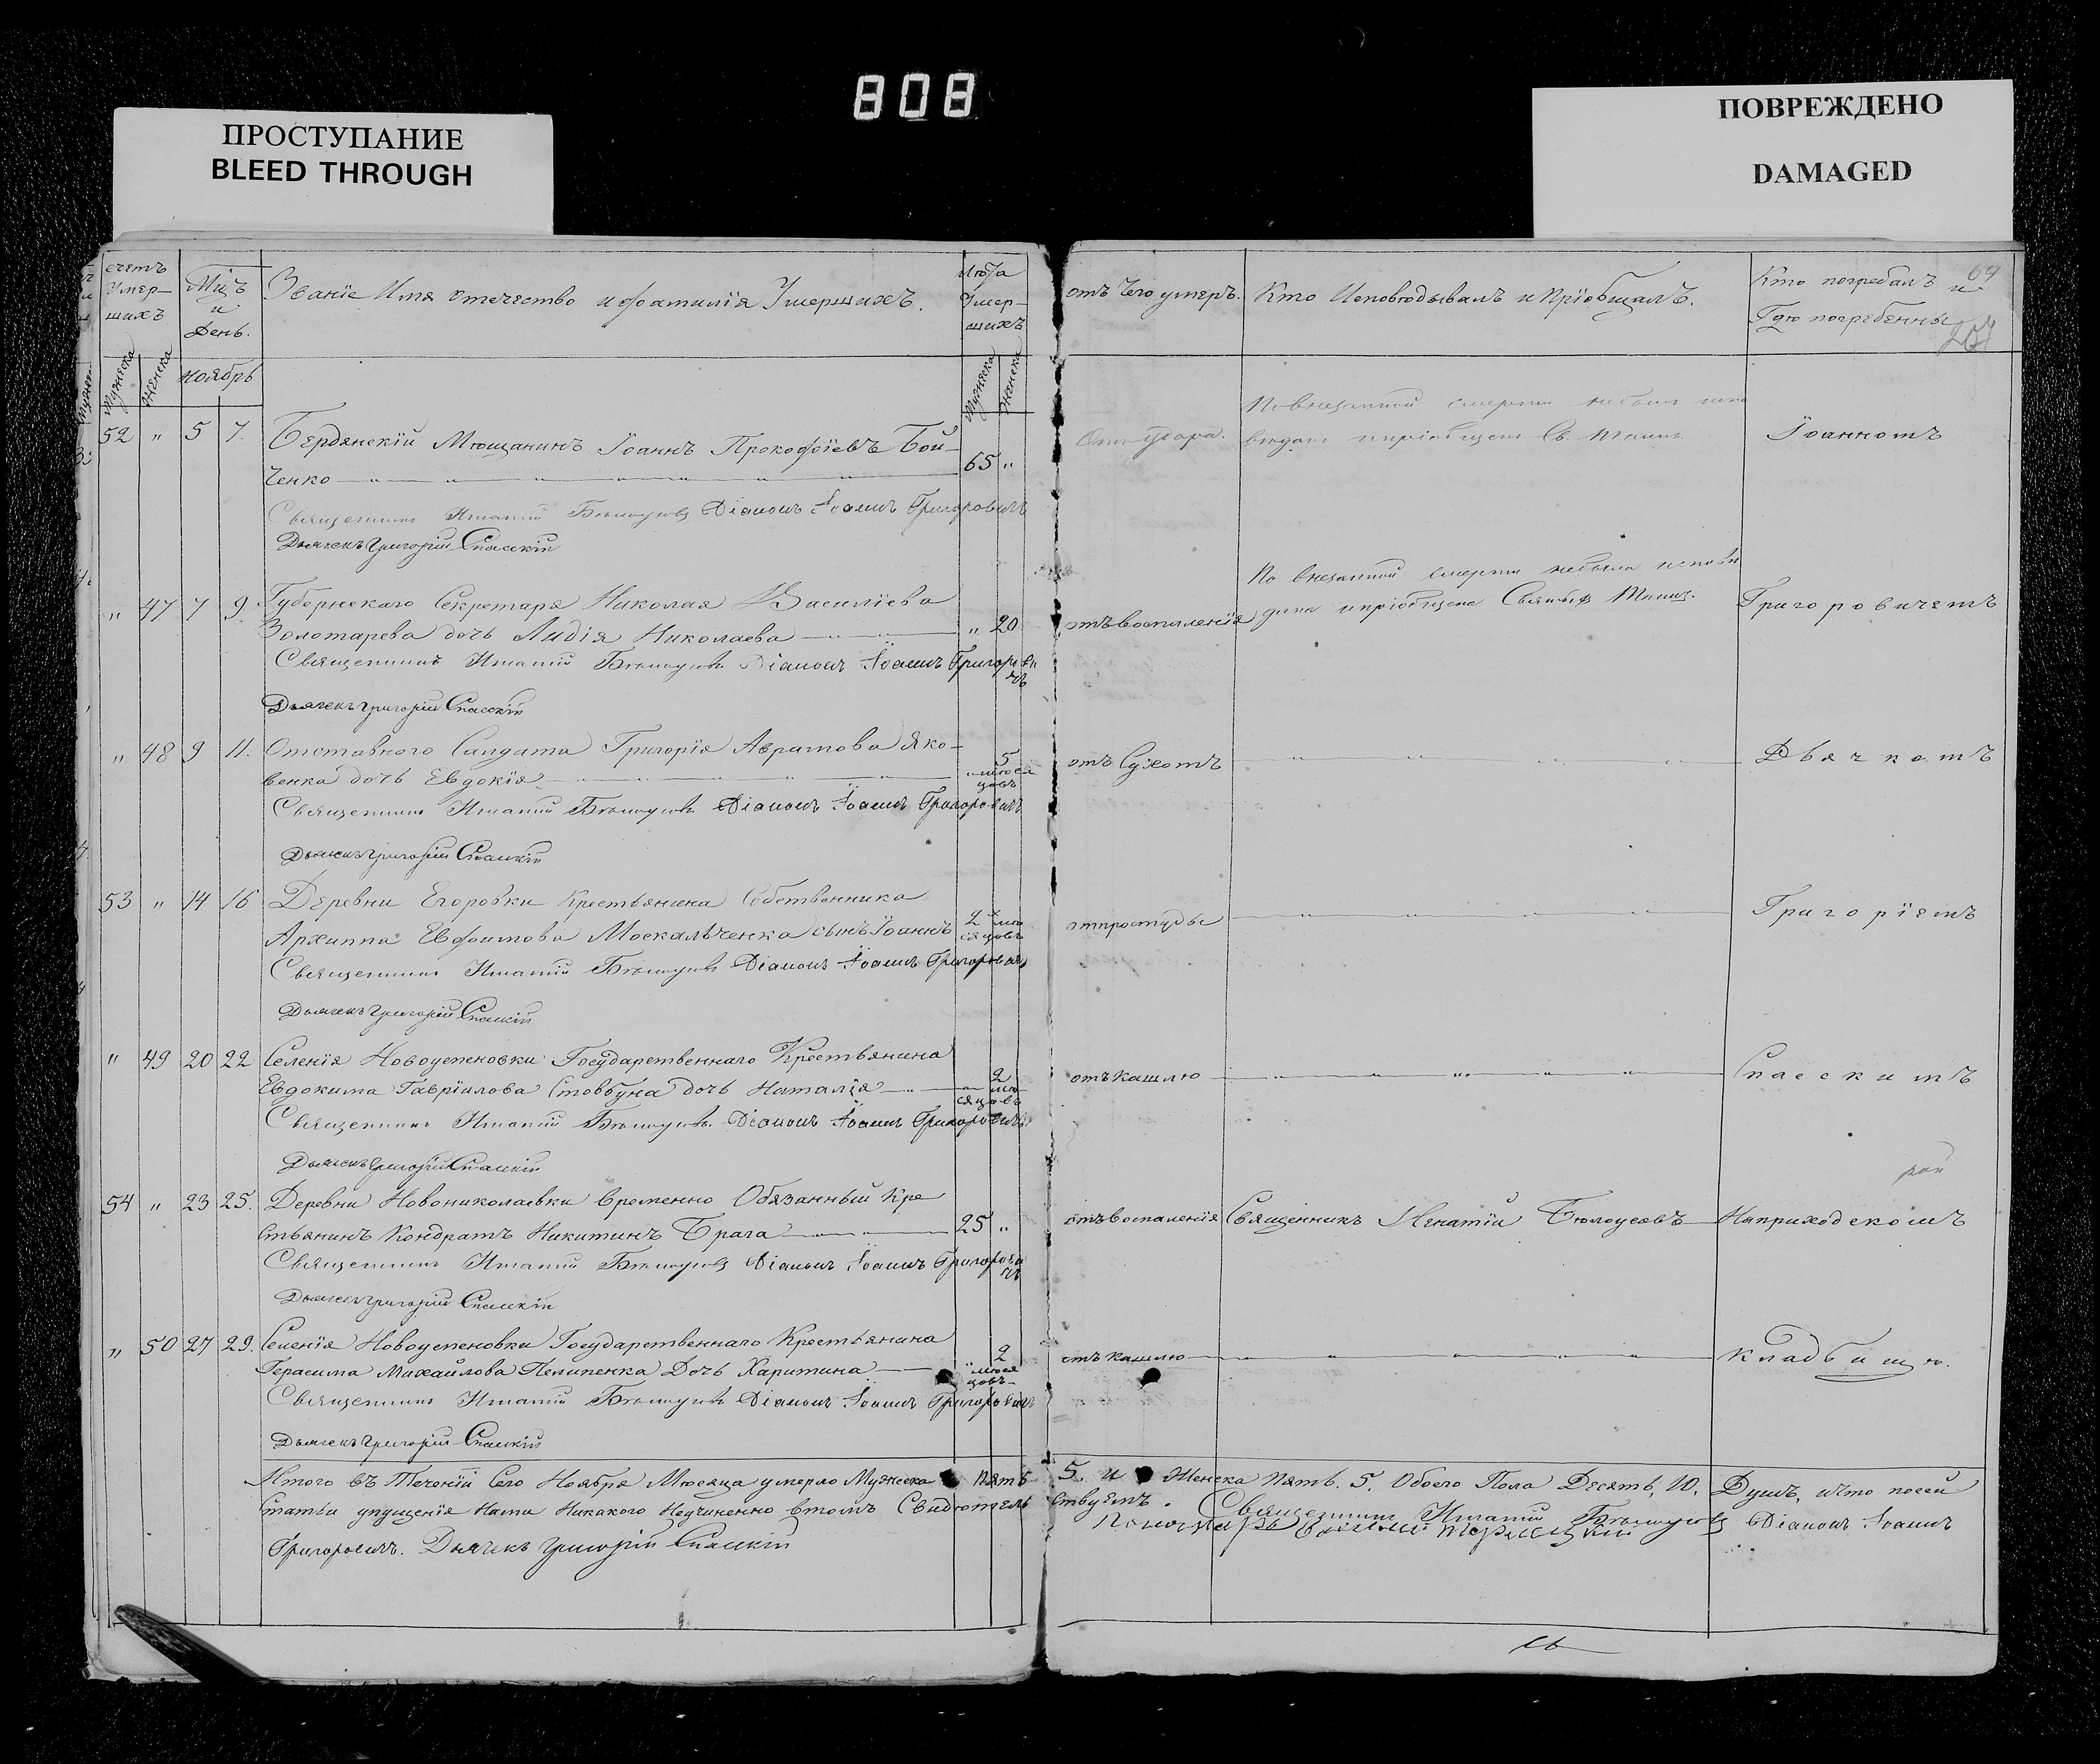 808
ПРОСТУПАНИЕ
BLEED THROUGH
ПОВРЕЖДЕНО
DAMAGED
счетъ Умер-шихъ
Мцъ и День.
Званіе Имя отечество и фамилія Умершихъ.
Лѣта Умер-шихъ
отъ Чего умеръ.
Кто Исповѣдывалъ и Пріобщалъ.
Кто погребалъ и
Гдѣ погребенны
Мужеска
Женска
Ноябрь
Мужеска
Женска
52 " 5 7. Бердянскій Мѣщанинъ Іоаннъ Прокофіевъ Бой-
ченко 65 "
От удара.
По внезапной смерти небылъ испо
вѣданъ и пріобщенъ Св. Таинъ.
Іоанномъ
Священникъ Игнатій Бѣлоусовъ Діаконъ Іоаннъ Григоровичъ
Дьячекъ Григорій Спасскій
" 47 7 9. Губернскаго Секретаря Николая Василіева
Золотарева дочь Лидія Николаева " 20
отъ воспаленія
По внезапной смерти небыла исповѣ
дана и пріобщена Святыхъ Таинъ.
Григоровичемъ
Священникъ Игнатій Бѣлоусовъ Діаконъ Іоаннъ Григорови
чъ
Дьячекъ Григорій Спасскій
" 48 9 11. Отставного Салдата Григорія Аврамова Яко-
венка дочь Евдокія " 5 мѣся
цовъ
отъ Сухотъ
Дьячкомъ
Священникъ Игнатій Бѣлоусовъ Діаконъ Іоаннъ Григоровичъ
Дьячекъ Григорій Спасскій
53 " 14 16 Деревни Егоровки Крестьянина Собственника
Архиппа Евфимова Москальченка сынъ Іоаннъ 2 мѣ
сяцовъ
отпростуды
Григоріемъ
Священникъ Игнатій Бѣлоусовъ Діаконъ Іоаннъ Григоровичъ
Дьячекъ Григорій Спасскій
" 49 20 22 Селенія Новоуспеновки Государственнаго Крестьянина
Евдокима Гавріилова Стовбуна дочь Наталія 2 мѣ
сяцовъ
отъ кашлю
Спасскимъ
Священникъ Игнатій Бѣлоусовъ Діаконъ Іоаннъ Григоровичъ
Дьячекъ Григорій Спасскій
54 " 23 25. Деревни Новониколаевки Временно Обязанный Кре
стьянинъ Кондратъ Никитинъ Брага 25 "
отъ воспаленія
Священникъ Игнатій Бѣлоусовъ
На приходскомъ
Священникъ Игнатій Бѣлоусовъ Діаконъ Іоаннъ Григорови
чъ
Дьячекъ Григорій Спасскій
" 50 27 29. Селенія Новоуспеновки Государственнаго Крестьянина
Герасима Михайлова Пелипенка Дочь Харитина 2 мѣся
цовъ
отъ кашлю
кладбищѣ.
Священникъ Игнатій Бѣлоусовъ Діаконъ Іоаннъ Григоровичъ
Дьячекъ Григорій Спасскій
Итого въ Теченіи Сего Ноября Мѣсяца умерло Мужеска Пять 5. и Женска Пять. 5. Обоего Пола Десять, 10. Душъ, что посей
статьи упущенія Нами Никакого Неучиненно втомъ Свидѣтель ствуемъ. Священникъ Игнатій Бѣлоусовъ Діаконъ Іоаннъ
Григоровичъ. Дьячекъ Григорій Спасскій
Пономарь